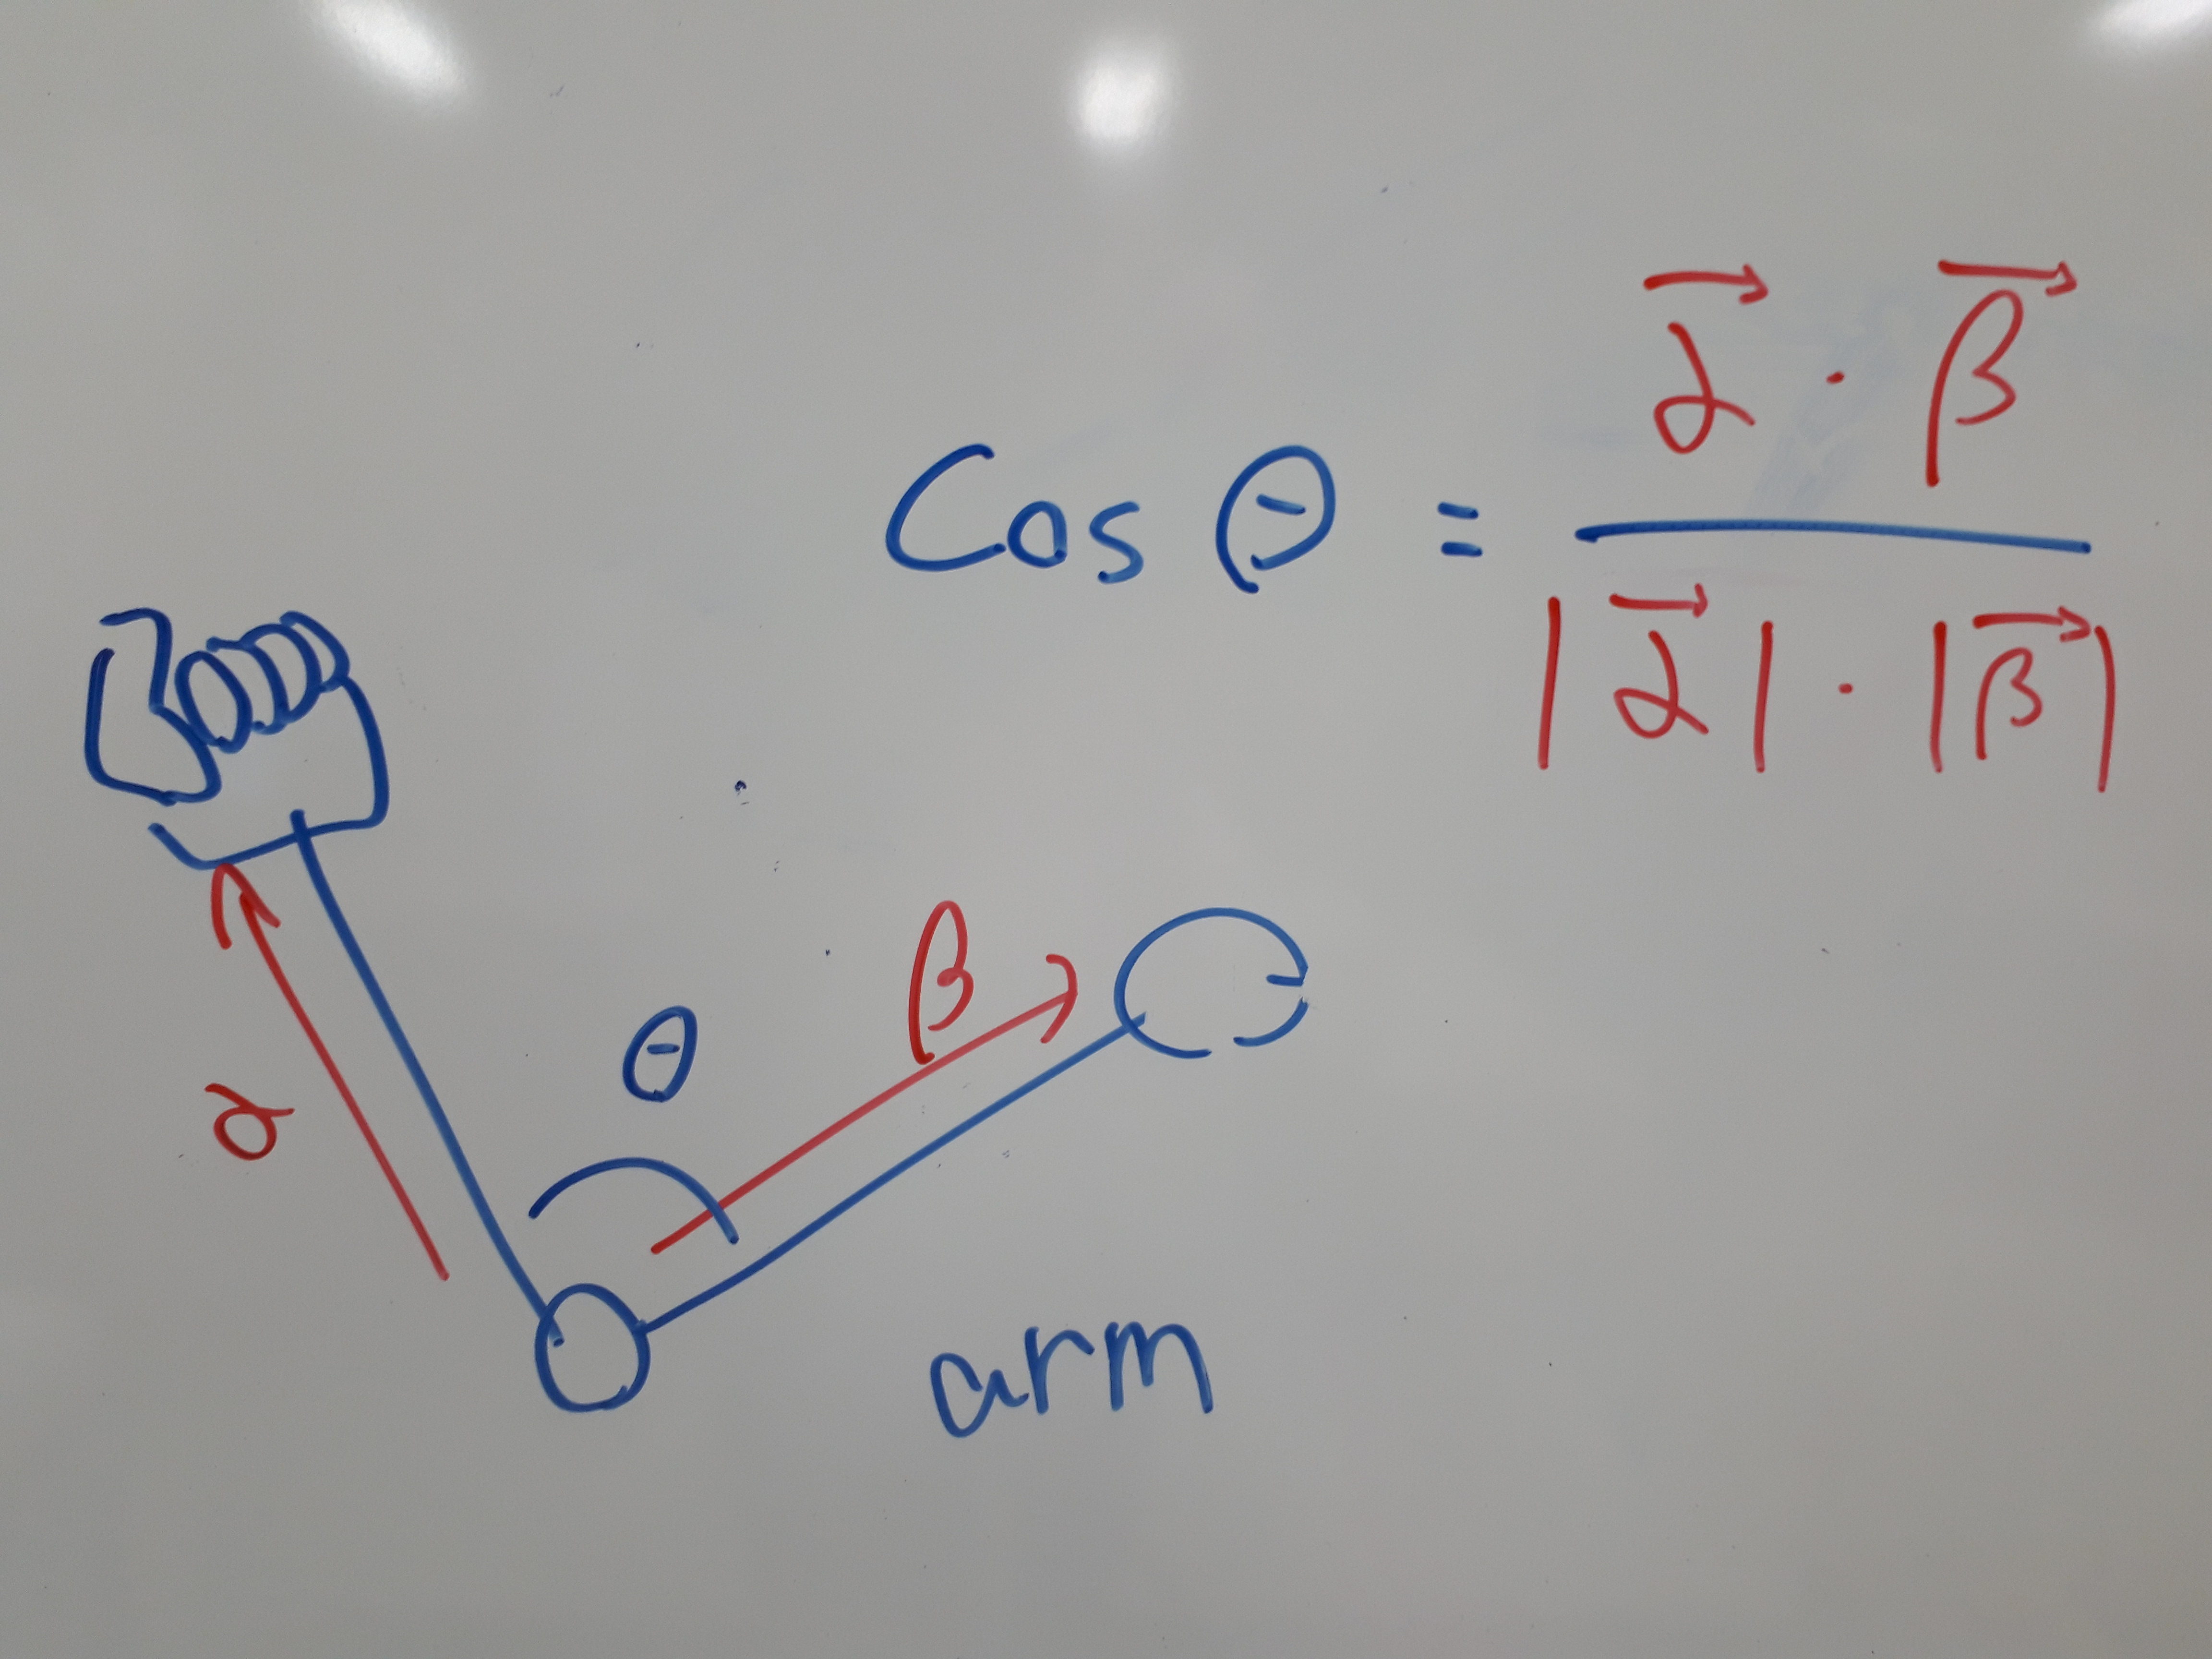 cos θ = α⃗ · β⃗ / |α⃗| · |β⃗|
β
θ
α
arm